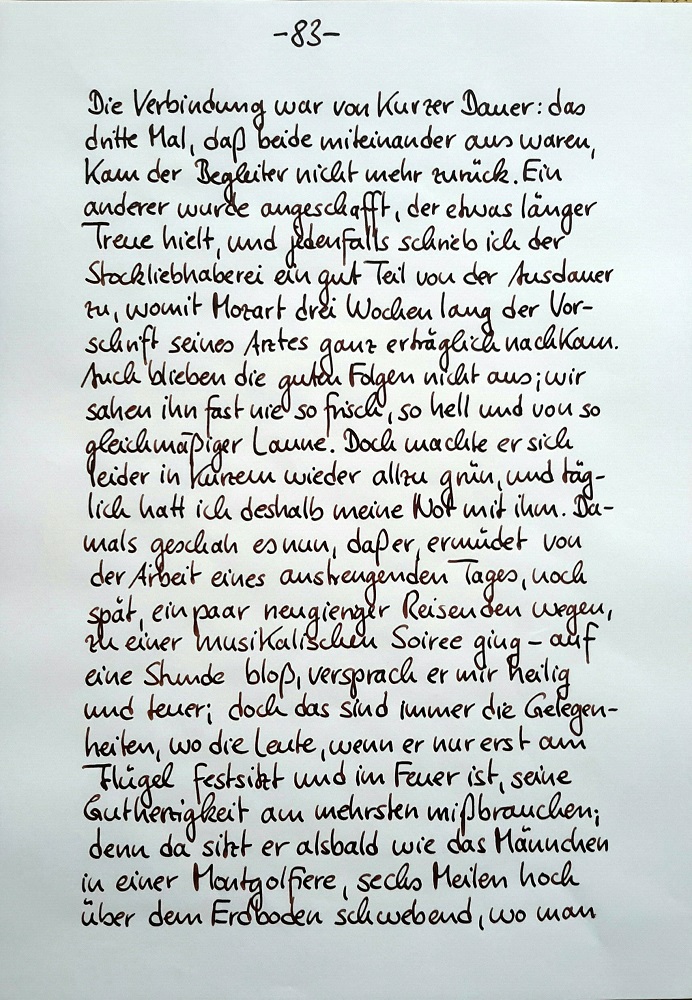 -83-
Die Verbindung war von Kurzer Dauer: das
dritte Mal, daß beide miteinander aus waren,
Kam der Begleiter nicht mehr zurück. Ein
anderer wurde angeschafft, der etwas länger
Treue hielt, und jedenfalls schrieb ich der
Stockliebhaberei ein gut Teil von der Ausdauer
zu, womit Mozart drei Wochen lang der Vor-
schrift seines Arztes ganz erträglich nachKam.
Auch blieben die guten Folgen nicht aus; wir
sahen ihn fast nie so frisch, so hell und von so
gleichmäßiger Laune. Doch machte er sich
leider in Kurzem wieder allzu grün, und täg-
lich hatt ich deshalb meine Not mit ihm. Da-
mals geschah es nun, daß er, ermüdet von
der Arbeit eines anstrengenden Tages, noch
spät, ein paar neugieriger Reisenden wegen,
zu einer musiKalischen Soiree ging - auf
eine Stunde bloß, versprach er mir heilig
und teuer; doch das sind immer die Gelegen-
heiten, wo die Leute, wenn er nur erst am
Flügel festsitzt und im Feuer ist, seine
Gutherzigkeit am mehrsten mißbrauchen;
denn da sitzt er alsbald wie das Männchen
in einer Montgolfiere, sechs Meilen hoch
über dem Erdboden schwebend, wo man